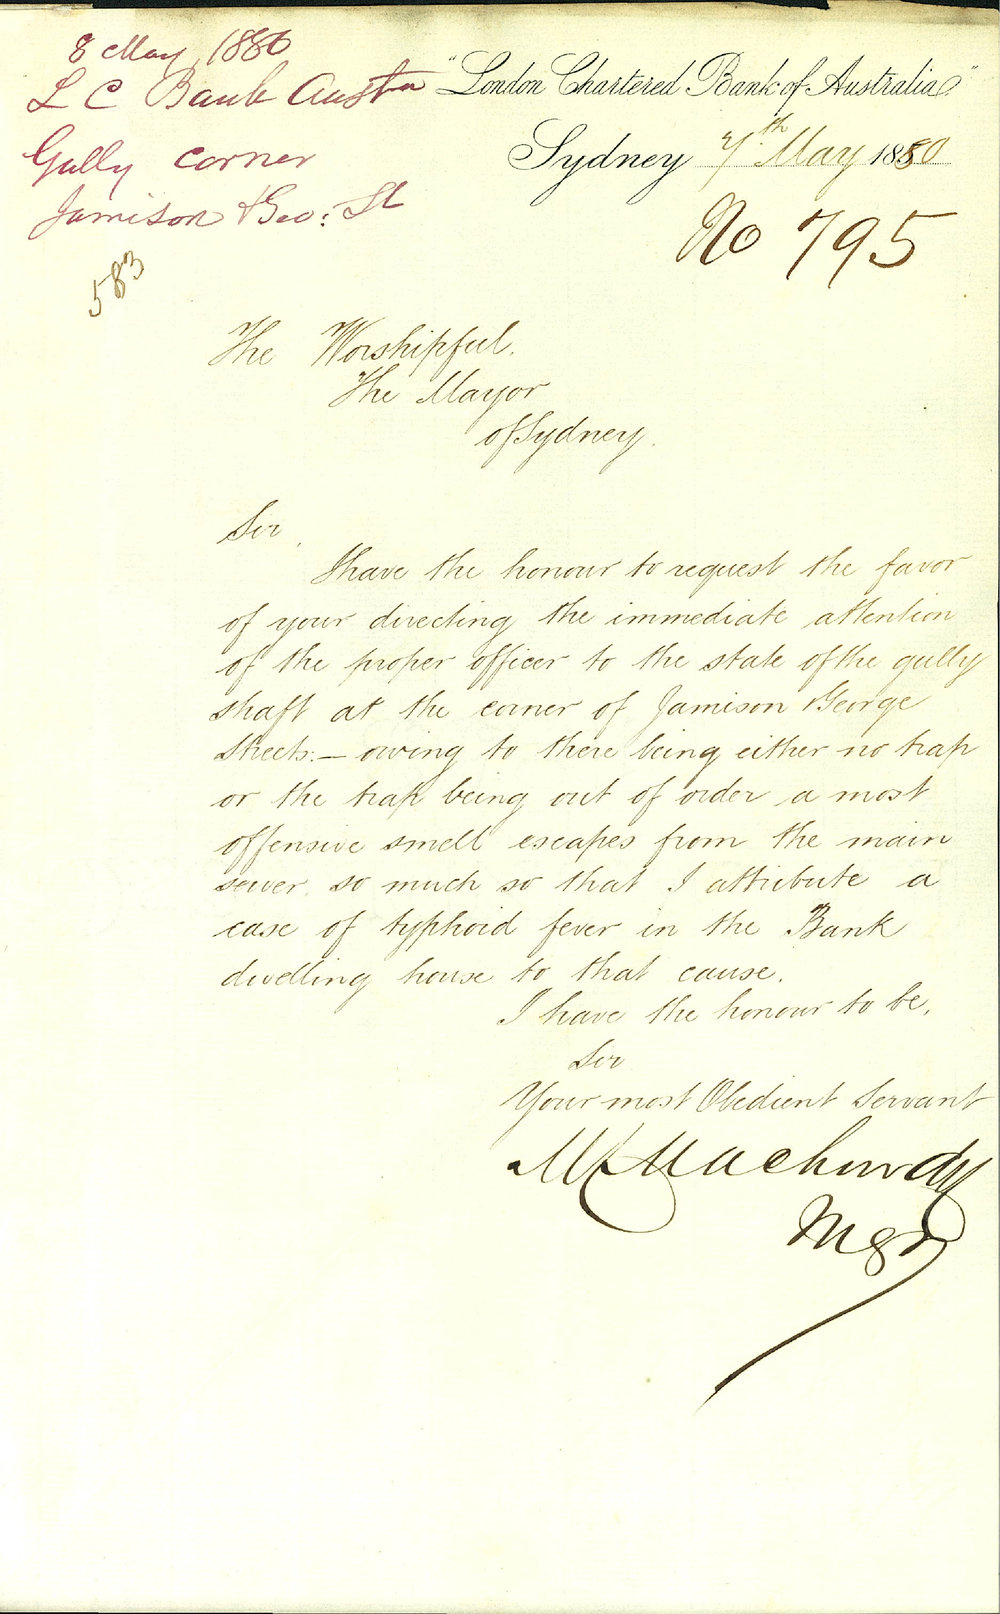 8 May 1880
L C Bank Austn
Gully corner
Jamison & Geo: St
583
"London Chartered Bank of Australia"
Sydney 7th May 1880
No 795
The Worshipful.
The Mayor
of Sydney.
Sir,
I have the honour to request the favor
of your directing the immediate attention
of the proper officer to the state of the gully
shaft at the corner of Jamison & George
Streets:— owing to there being either no trap
or the trap being out of order a most
offensive smell escapes from the main
sewer. so much so that I attribute a
case of typhoid fever in the Bank
dwelling house to that cause.
I have the honour to be,
Sir
Your most Obedient Servant
Mgr